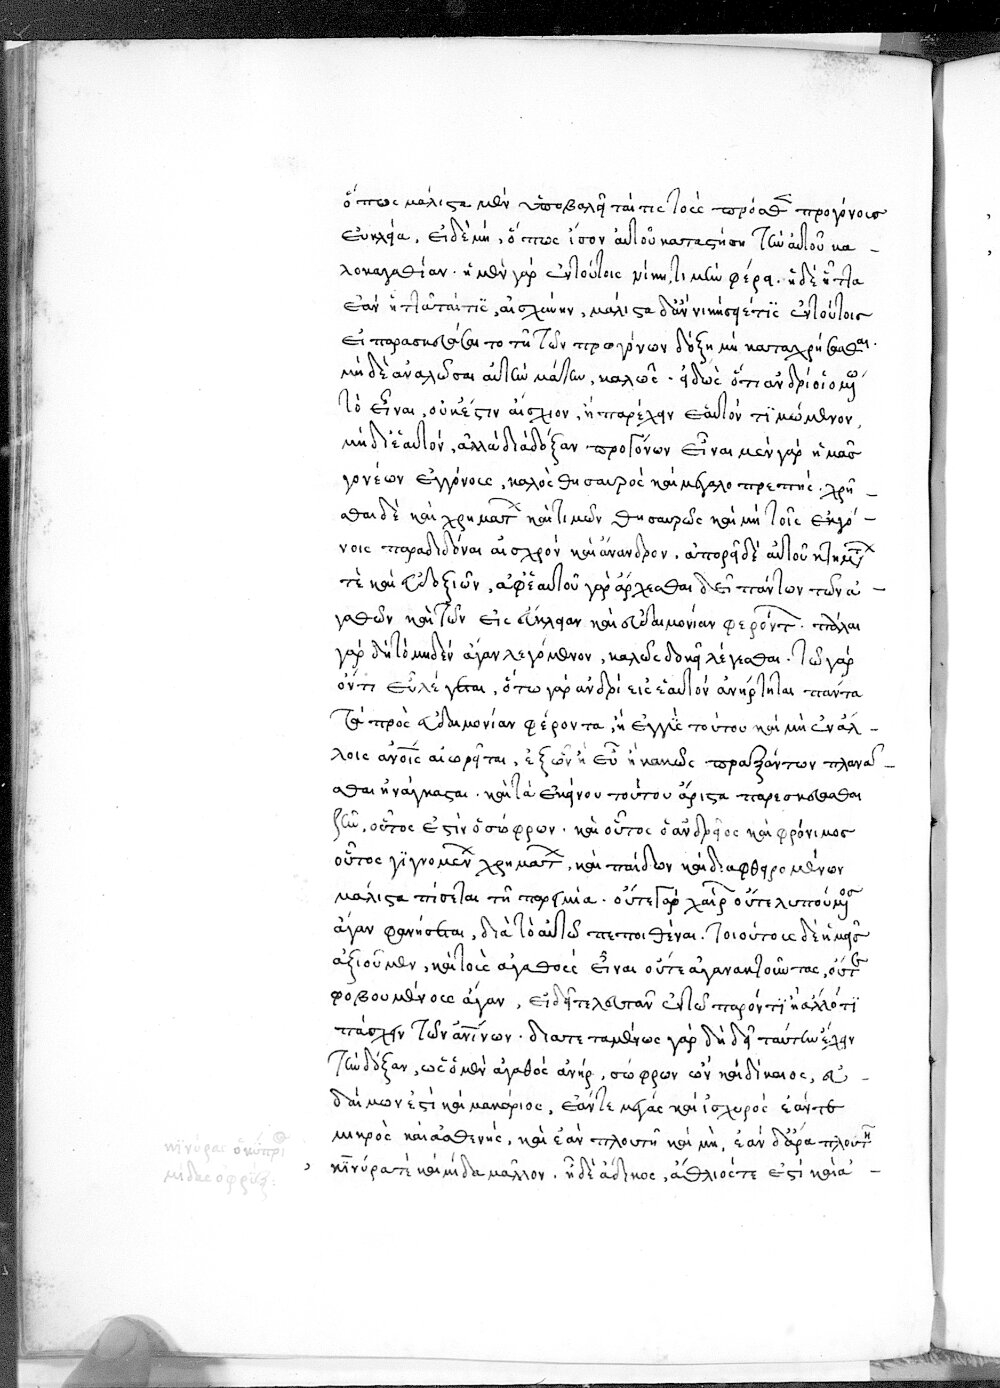 ὅπως μάλιστα μὲν ὑπερβαλεῖται τις τοὺς πρόσθεν προγόνους
εὐκλείᾳ, εἰ δὲ μὴ, ὅπως ἴσον αὐτοῦ καταστήσῃ τὴν αὐτοῦ κα-
λοκαγαθίαν. ἡ μὲν γὰρ ἐν τούτοις νίκη, τιμὴν φέρει. ἡ δὲ ἧττα
ἐὰν ἡττᾶται τις, αἰσχύνην, μάλιστα δ' ἂν νικήσειέ τις ἐν τούτοις
εἰ παρασκευάσαιτο τῇ τῶν προγόνων δόξῃ μὴ καταχρήσασθαι.
μὴ δὲ ἀναλῶσαι αὐτὴν μάτην, καλῶς. εἰδὼς ὅτι ἀνδρὶ οἰομένῳ
τὸ εἶναι, οὐκ ἔστιν αἴσχιον, ἢ παρέχειν ἑαυτὸν τιμώμενον,
μὴ δι' ἑαυτὸν, ἀλλὰ διὰ δόξαν προγόνων εἶναι μὲν γὰρ ἡμᾶς
γονέων ἐγγόνοις, καλὸς θησαυρὸς καὶ μεγαλοπρεπής. χρῆ-
σθαι δὲ καὶ χρημάτων καὶ τιμῶν θησαυροῖς καὶ μὴ τοῖς ἐκγό-
νοις παραδιδόναι αἰσχρὸν καὶ ἄνανδρον. ἀπορίᾳ δὲ αὐτοῦ κτημάτων
τὲ καὶ εὐδοξιῶν, ἀφ' ἑαυτοῦ γὰρ ἄρχεσθαι δεῖ πάντων τῶν ἀ-
γαθῶν καὶ τῶν εἰς εὔκλειαν καὶ εὐδαιμονίαν φερόντων. πάλαι
γὰρ δὴ τὸ μηδὲν ἄγαν λεγόμενον, καλῶς δοκεῖ λέγεσθαι. τῷ γὰρ
ὄντι εὖ λέγεται, ὅτῳ γὰρ ἀνδρὶ εἰς ἑαυτὸν ἀνήρτηται πάντα
τὰ πρὸς εὐδαιμονίαν φέροντα, ἢ ἐγγὺς τούτου καὶ μὴ ἐν ἄλ-
λοις ἀνοις αἰωρεῖται, ἐξ ὧν ἢ εὖ ἢ κακῶς πραξάντων πλανᾶ-
σθαι ἠνάγκασται. καὶ τὰ ἐκείνου τούτου ἄριστα παρεσκεύασθαι
ζῆν, οὗτος ἐστὶν ὁ σώφρων. καὶ οὗτος ὁ ἀνδρεῖος καὶ φρόνιμος
οὗτος γιγνομένων χρημάτων, καὶ παίδων καὶ διαφθειρομένων
μάλιστα πείσεται τῇ παροιμίᾳ. οὔτε γὰρ χαίρων οὔτε λυπούμενος
ἄγαν φανήσεται, διὰ τὸ αὑτῷ πεποιθέναι. τοιούτους δὲ ἡμεῖς
ἀξιοῦμεν, καὶ τοὺς ἀγαθοὺς εἶναι οὔτε ἀγανακτοῦντας, οὔτε
φοβουμένους ἄγαν, εἰ δεῖ τελευτᾶν ἐν τῷ παρόντι ἢ ἄλλό τι
πάσχειν τῶν ἀνίνων. διατεταμένως γὰρ δὴ δεῖ ταύτην ἔχειν
τὴν δόξαν, ὡς ὁ μὲν ἀγαθὸς ἀνὴρ, σώφρων ὢν καὶ δίκαιος, εὐ-
δαίμων ἐστὶ καὶ μακάριος, ἐάν τε μέγας καὶ ἰσχυρὸς ἐάν τε
μικρὸς καὶ ἀσθενὴς, καὶ ἐὰν πλουτῇ καὶ μὴ, ἐὰν δ' ἄρα πλουτῇ
κινύρα τὲ καὶ μίδα μᾶλλον. ᾖ δὲ ἄδικος, ἄθλιός τε ἐστὶ καὶ ἀ-
κινύρας ὁ κύπριος
μίδας ὁ φρύξ: